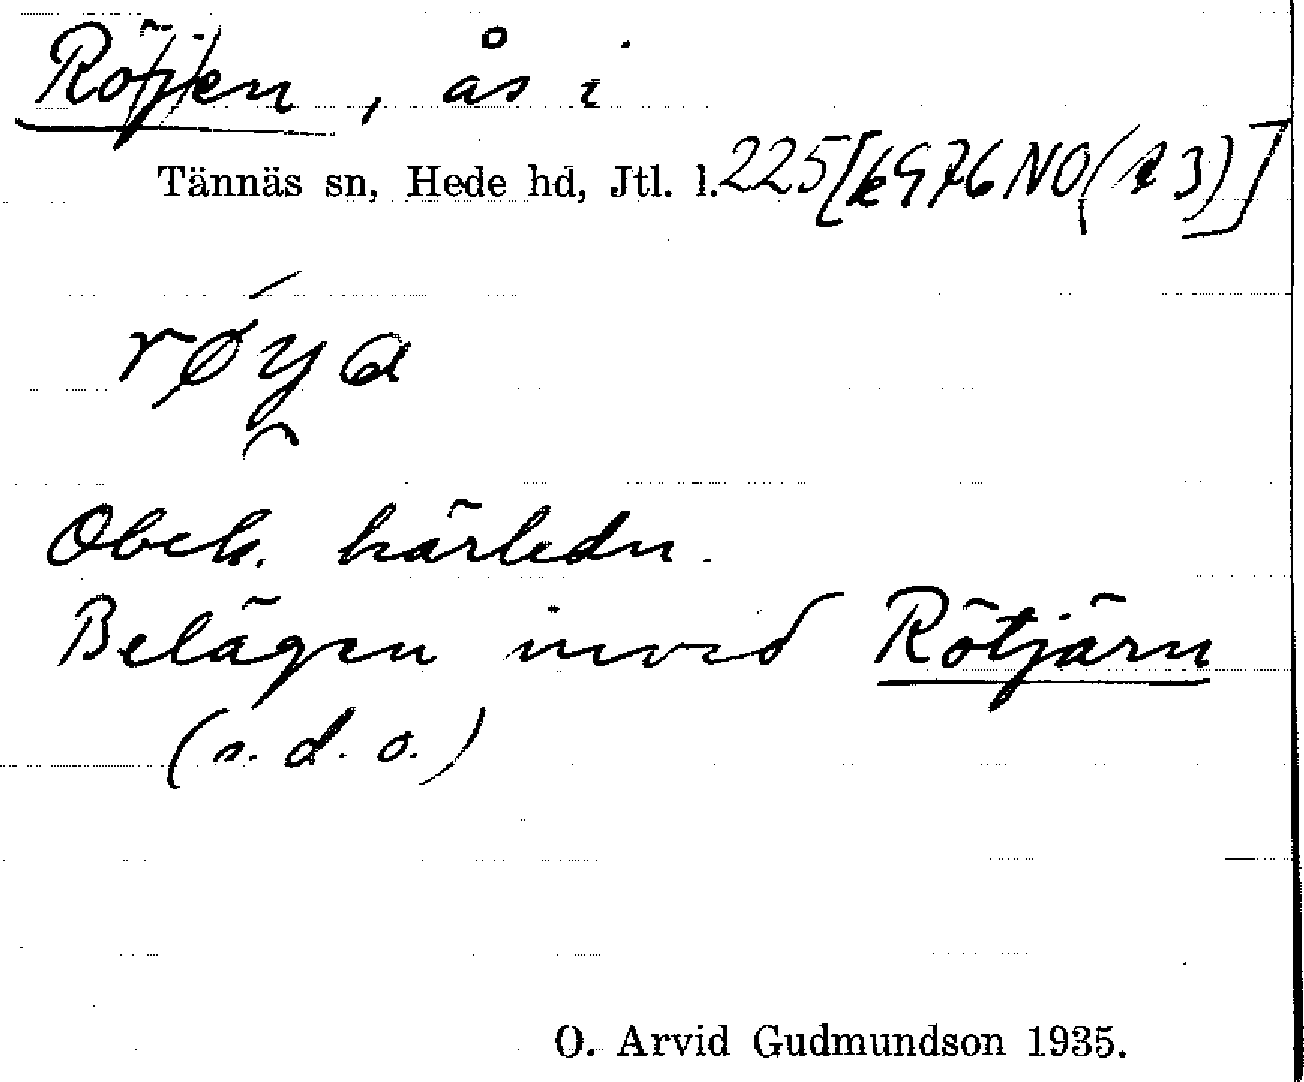 Röjen, ås i
Tännäs sn, Hede hd, Jtl. l. 225
røya
Obek. härledn.
Belägen invid Rötjärn
(s. d. o.)
O. Arvid Gudmundson 1935.